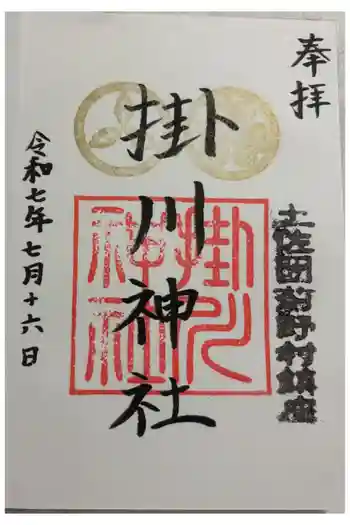 奉拝
土佐國秦野村鎮座
掛川神社
掛川
神社
令和七年七月十六日